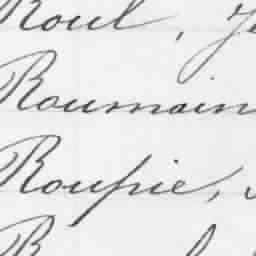 Roul, J
Roumain
Roupie,